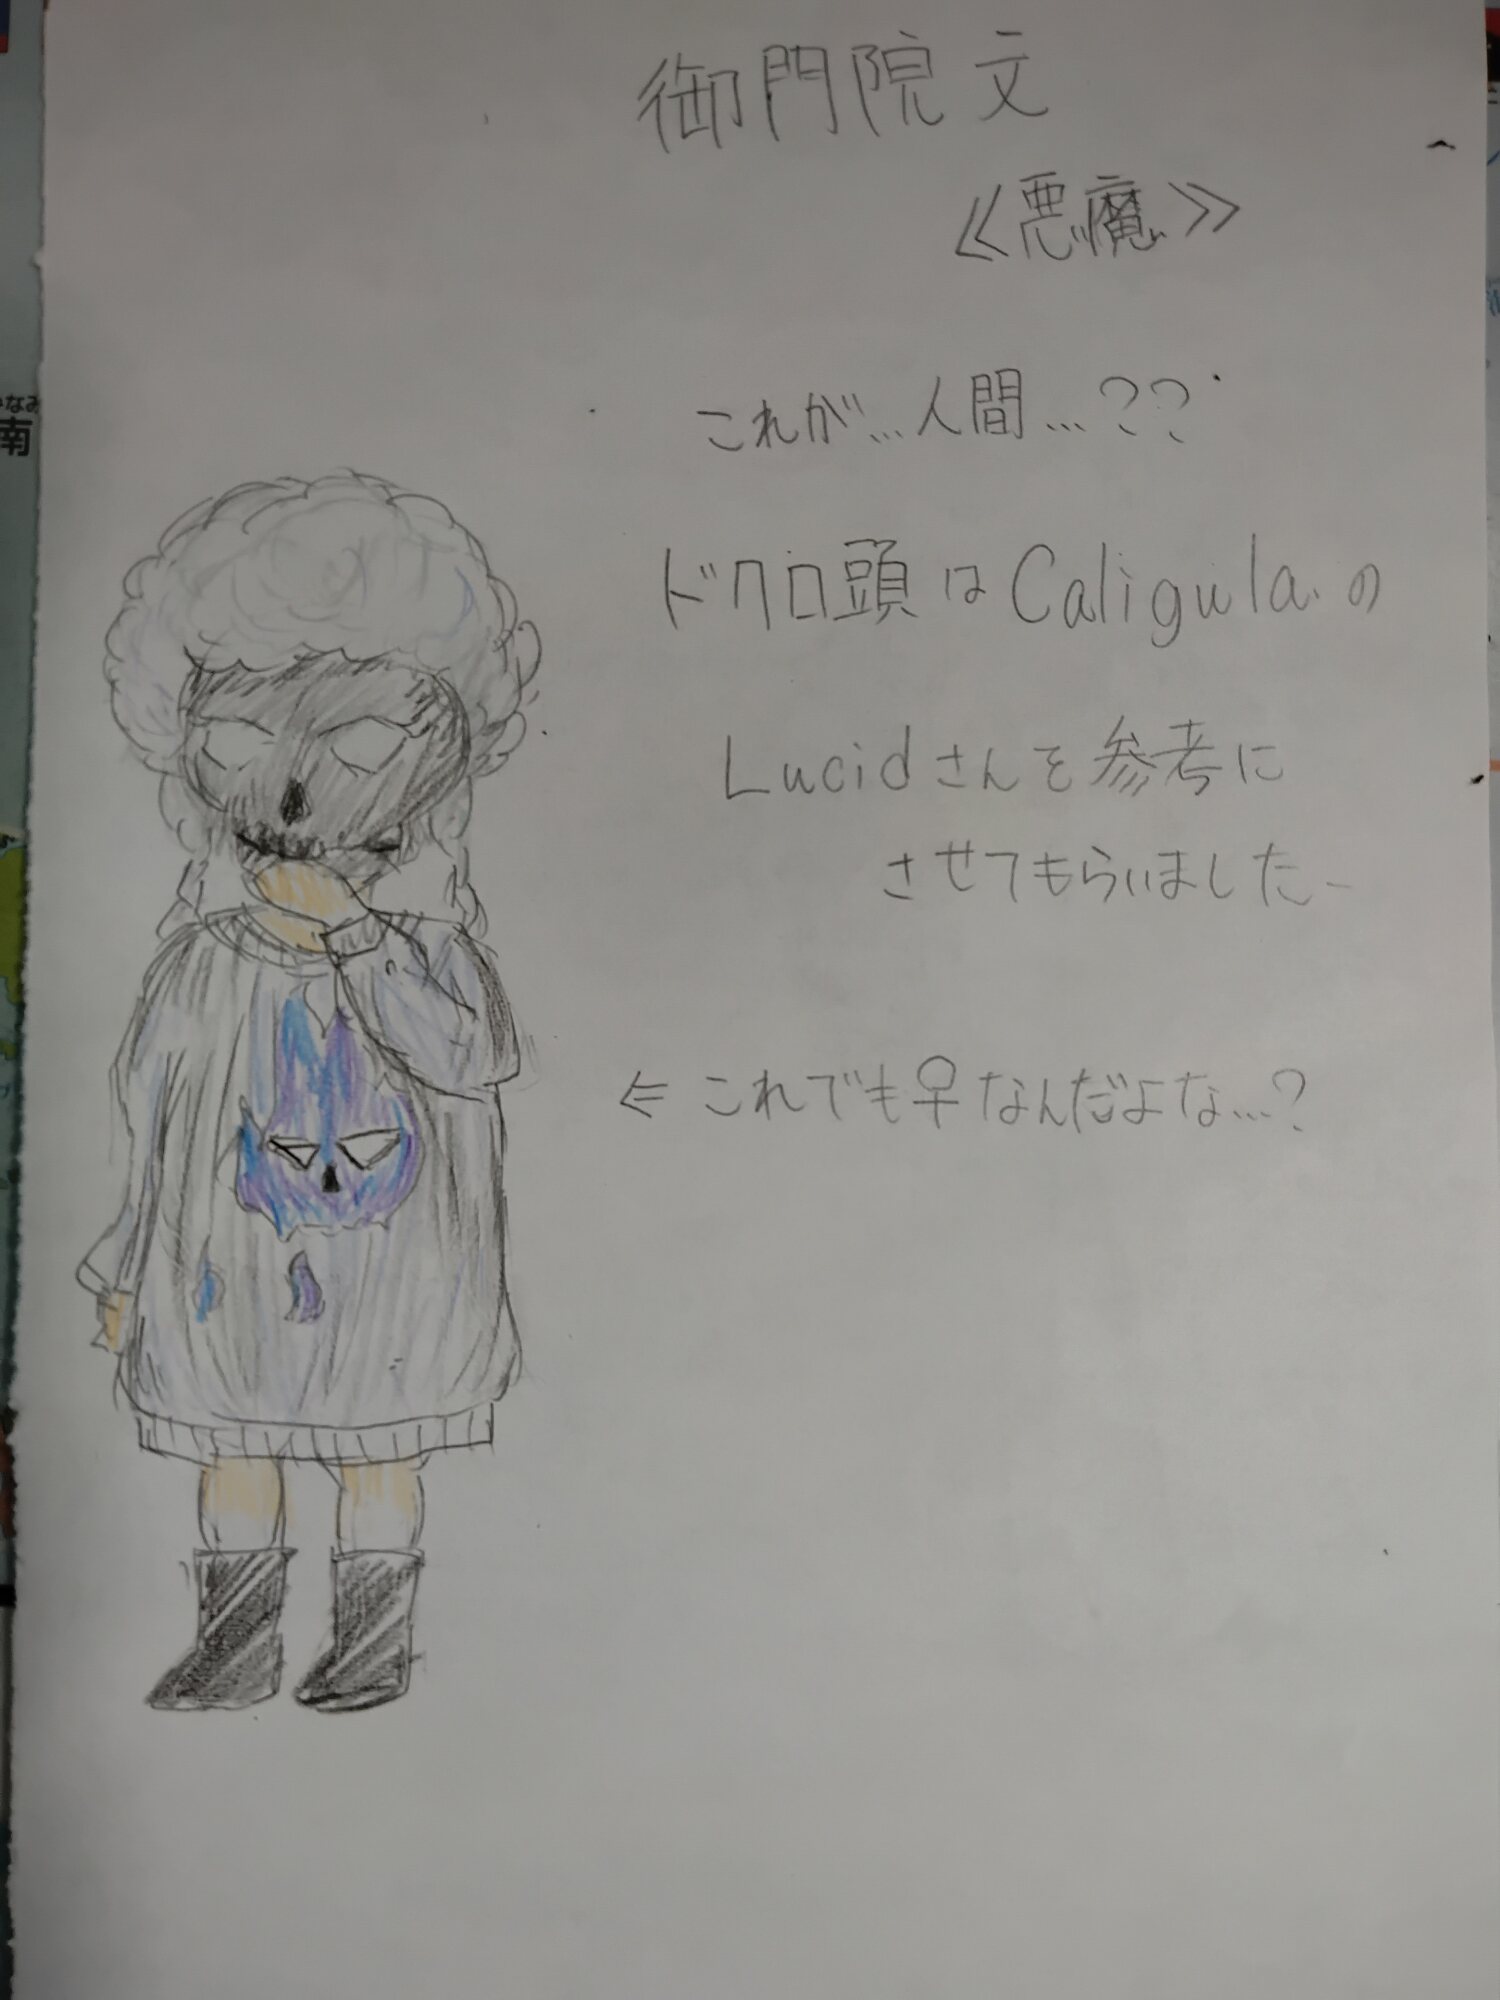 御門院文
≪悪魔≫
これが…人間…??
ドクロ頭はCaligulaの
Lucidさんを参考に
させてもらいましたー
⇐これでも♀なんだよな…?
南